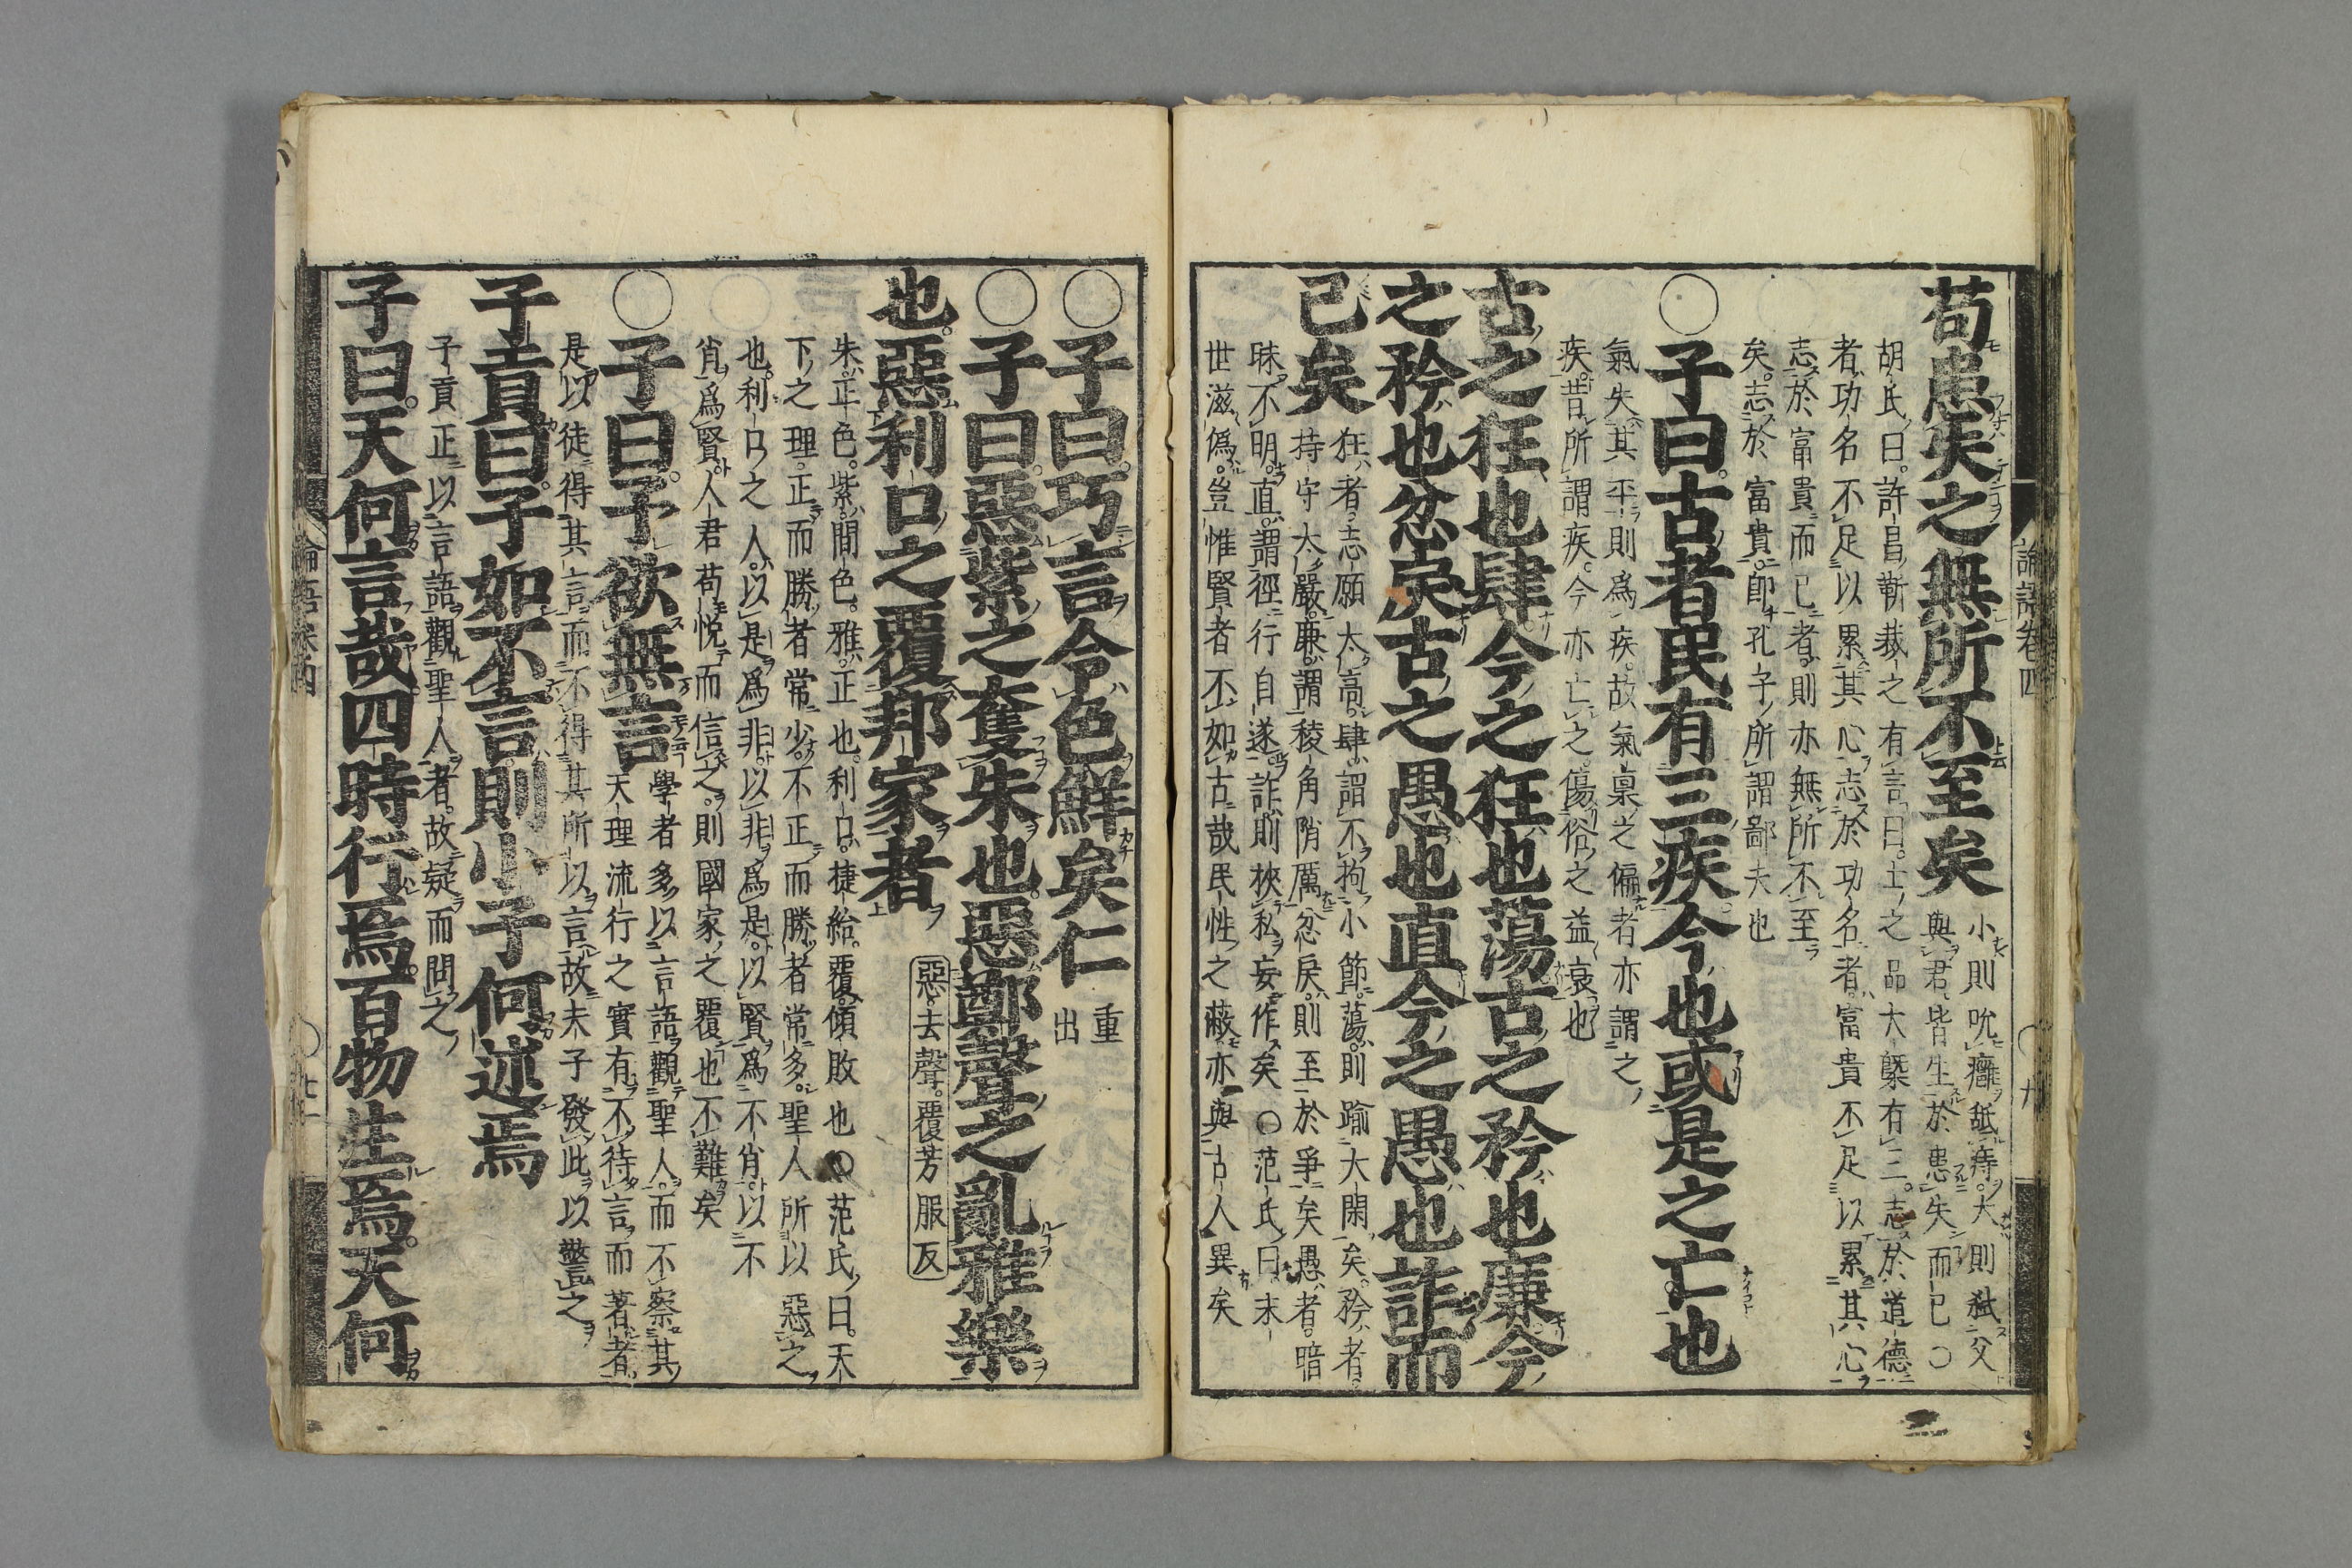 苟患失之無所不至矣
小則吮癰舐痔大則弑父
與君皆生於患失而已○
胡氏曰許昌靳裁之有言曰士之品大槩有三志於道德
者功名不足以累其心志於功名者富貴不足以累其心
志於富貴而已者則亦無所不至
矣志於富貴卽孔子所謂鄙夫也
○子曰古者民有三疾今也或是之亡也
氣失其平則爲疾故氣稟之偏者亦謂之
疾昔所謂疾今亦亡之傷俗之益衰也
古之狂也肆今之狂也蕩古之矜也廉今
之矜也忿戾古之愚也直今之愚也詐而
已矣
狂者志願太高肆謂不拘小節蕩則踰大閑矣矜者
持守太嚴廉謂稜角陗厲忿戾則至於爭矣愚者暗
昧不明直謂徑行自遂詐則挾私妄作矣○范氏曰末
世滋僞豈惟賢者不如古哉民性之蔽亦與古人異矣
論語卷四
○子曰巧言令色鮮矣仁
重
出
○子曰惡紫之奪朱也惡鄭聲之亂雅樂
也惡利口之覆邦家者
惡去聲覆芳服反
朱正色紫間色雅正也利口捷給覆傾敗也○范氏曰天
下之理正而勝者常少不正而勝者常多聖人所以惡之
也利口之人以是爲非以非爲是以賢爲不肖以不
肖爲賢人君苟悅而信之則國家之覆也不難矣
○子曰予欲無言
學者多以言語觀聖人而不察其
天理流行之實有不待言而著者
是以徒得其言而不得其所以言故夫子發此以警之
子貢曰子如不言則小子何述焉
子貢正以言語觀聖人者故疑而問之
子曰天何言哉四時行焉百物生焉天何
論語卷四